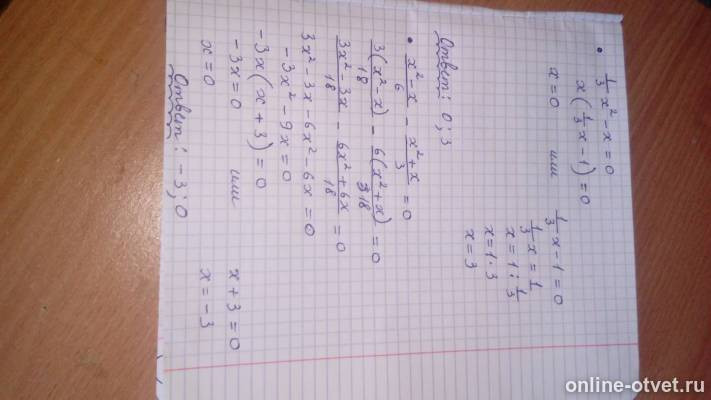 • 1/3 x² - x = 0
x(1/3 x - 1) = 0
x = 0 или 1/3 x - 1 = 0
1/3 x = 1
x = 1 : 1/3
x = 1 · 3
x = 3
Ответ: 0; 3
• (x² - x)/6 - (x² + x)/3 = 0
3(x² - x)/18 - 6(x² + x)/18 = 0
(3x² - 3x)/18 - (6x² + 6x)/18 = 0
3x² - 3x - 6x² - 6x = 0
-3x² - 9x = 0
-3x(x + 3) = 0
-3x = 0 или x + 3 = 0
x = 0 x = -3
Ответ: -3; 0
online-otvet.ru